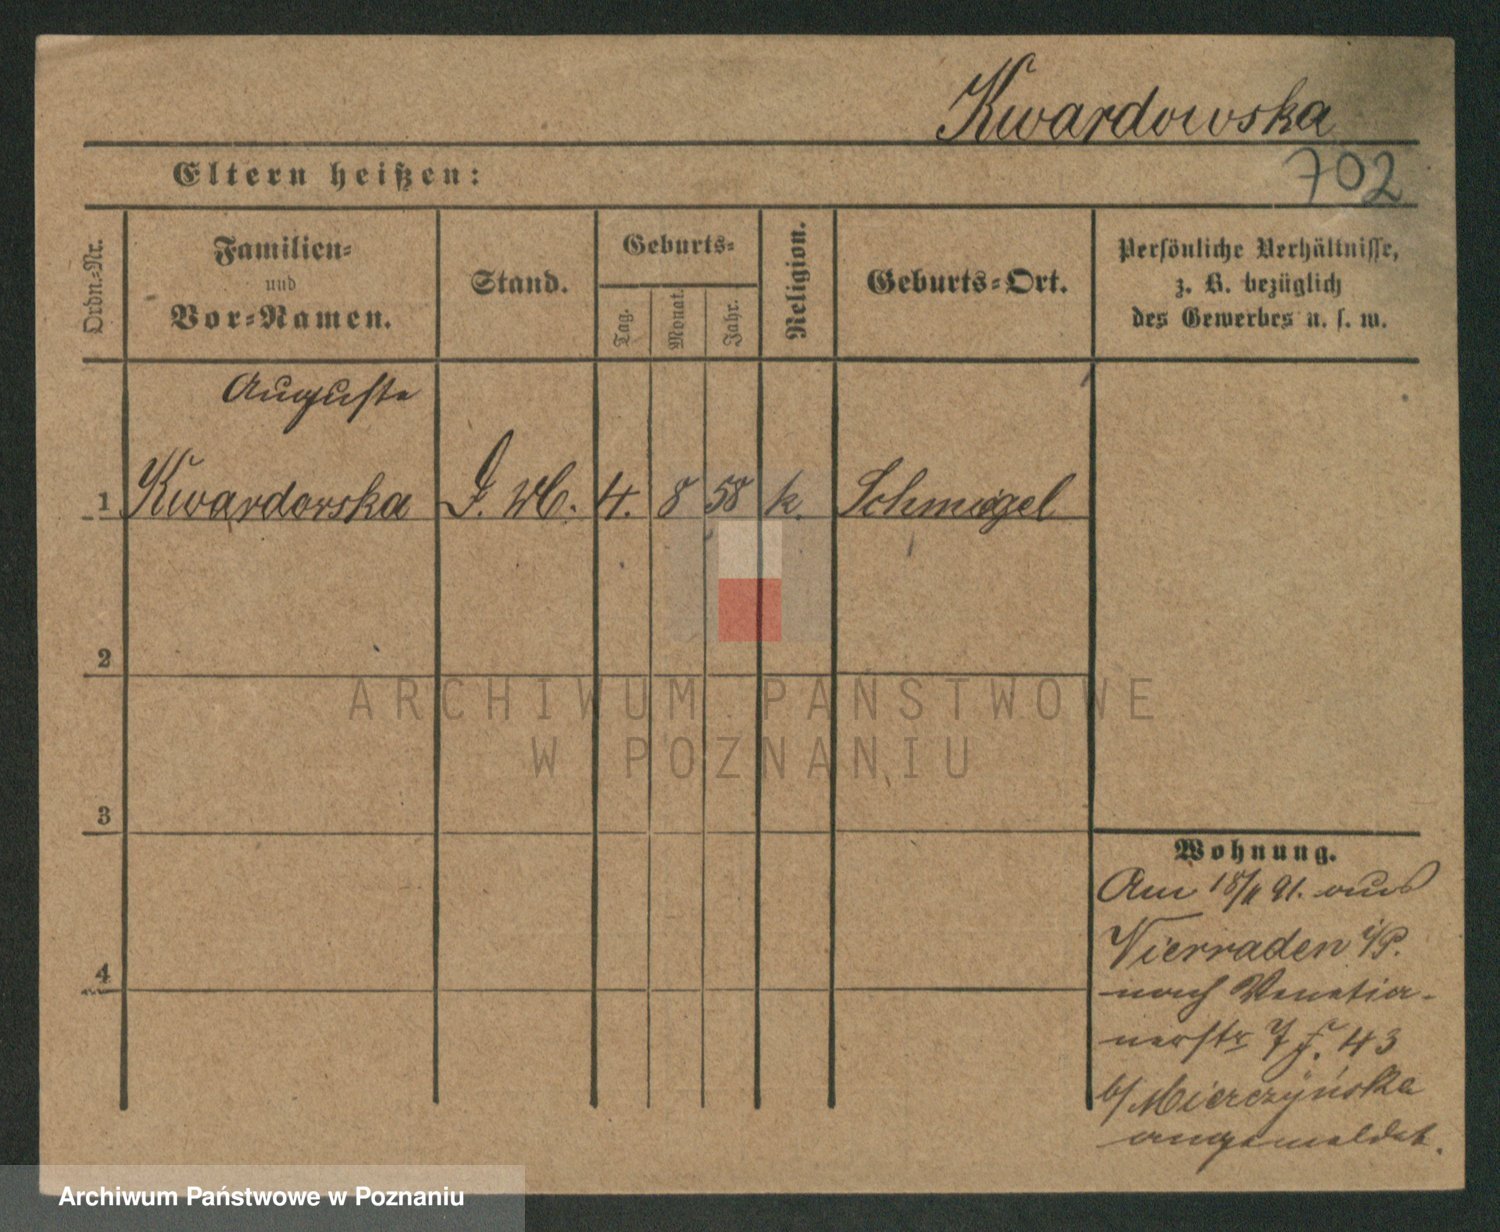 Kwardowska
Eltern heißen:
702
Ordn.-Nr.
Familien-
und
Vor-Namen.
Stand.
Geburts-
Tag.
Monat.
Jahr.
Religion.
Geburts-Ort.
Persönliche Verhältnisse,
z. B. bezüglich
des Gewerbes u. s. w.
Auguste
1 Kwardowska 4. 8 58 k. Schmiegel
2
ARCHIWUM PAŃSTWOWE
W POZNANIU
3
Wohnung.
Am 18/11 91. aus
Vierraden i/P.
nach Venetia-
nerstr 7 f. 43
b/ Mierczyńska
angemeldet.
4
Archiwum Państwowe w Poznaniu